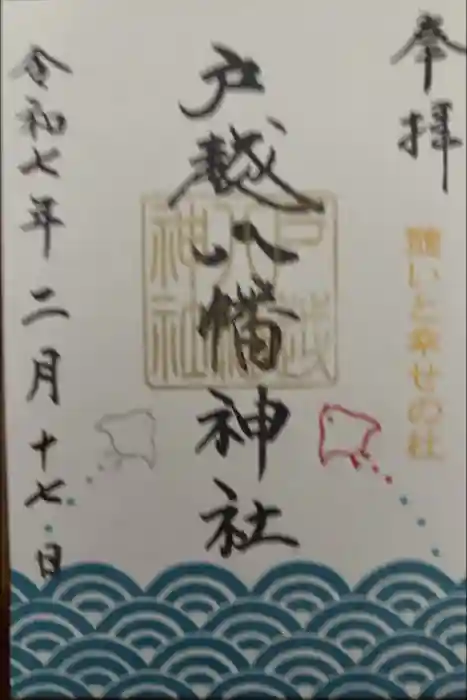 奉拝
願いと幸せの杜
戸越八幡神社
戸越
八幡
神社
令和七年二月十七日